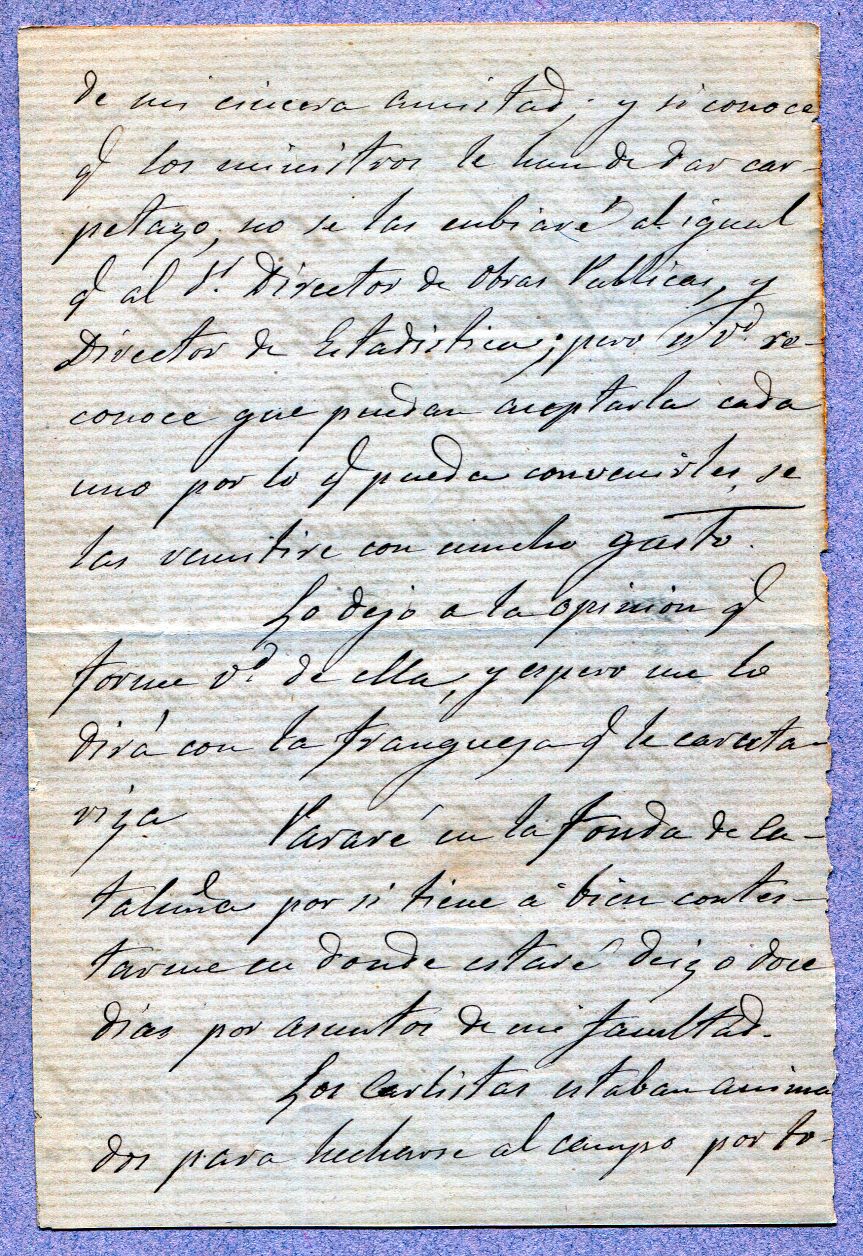 de mi cincera amistad; y si conoce
q los ministros le han de dar car-
petazo, no se las embiaré al igual
q al Sr. Director de Obras Publicas, y
Director de Estadistica; pero si Vd re-
conoce que puedan aceptarla cada
uno por lo q pueda convenirles, se
las remitire con mucho gusto.
Lo dejo a la opinion q
forme Vd de ella, y espero me lo
dirá con la franqueza q le caracta-
riza
Pararé en la fonda de Ca-
taluña por si tiene á bien contes-
tarme en donde estaré deiz o doce
dias por asuntos de mi facultad.
Los Carlistas estaban anima
dos para hecharse al campo por to-